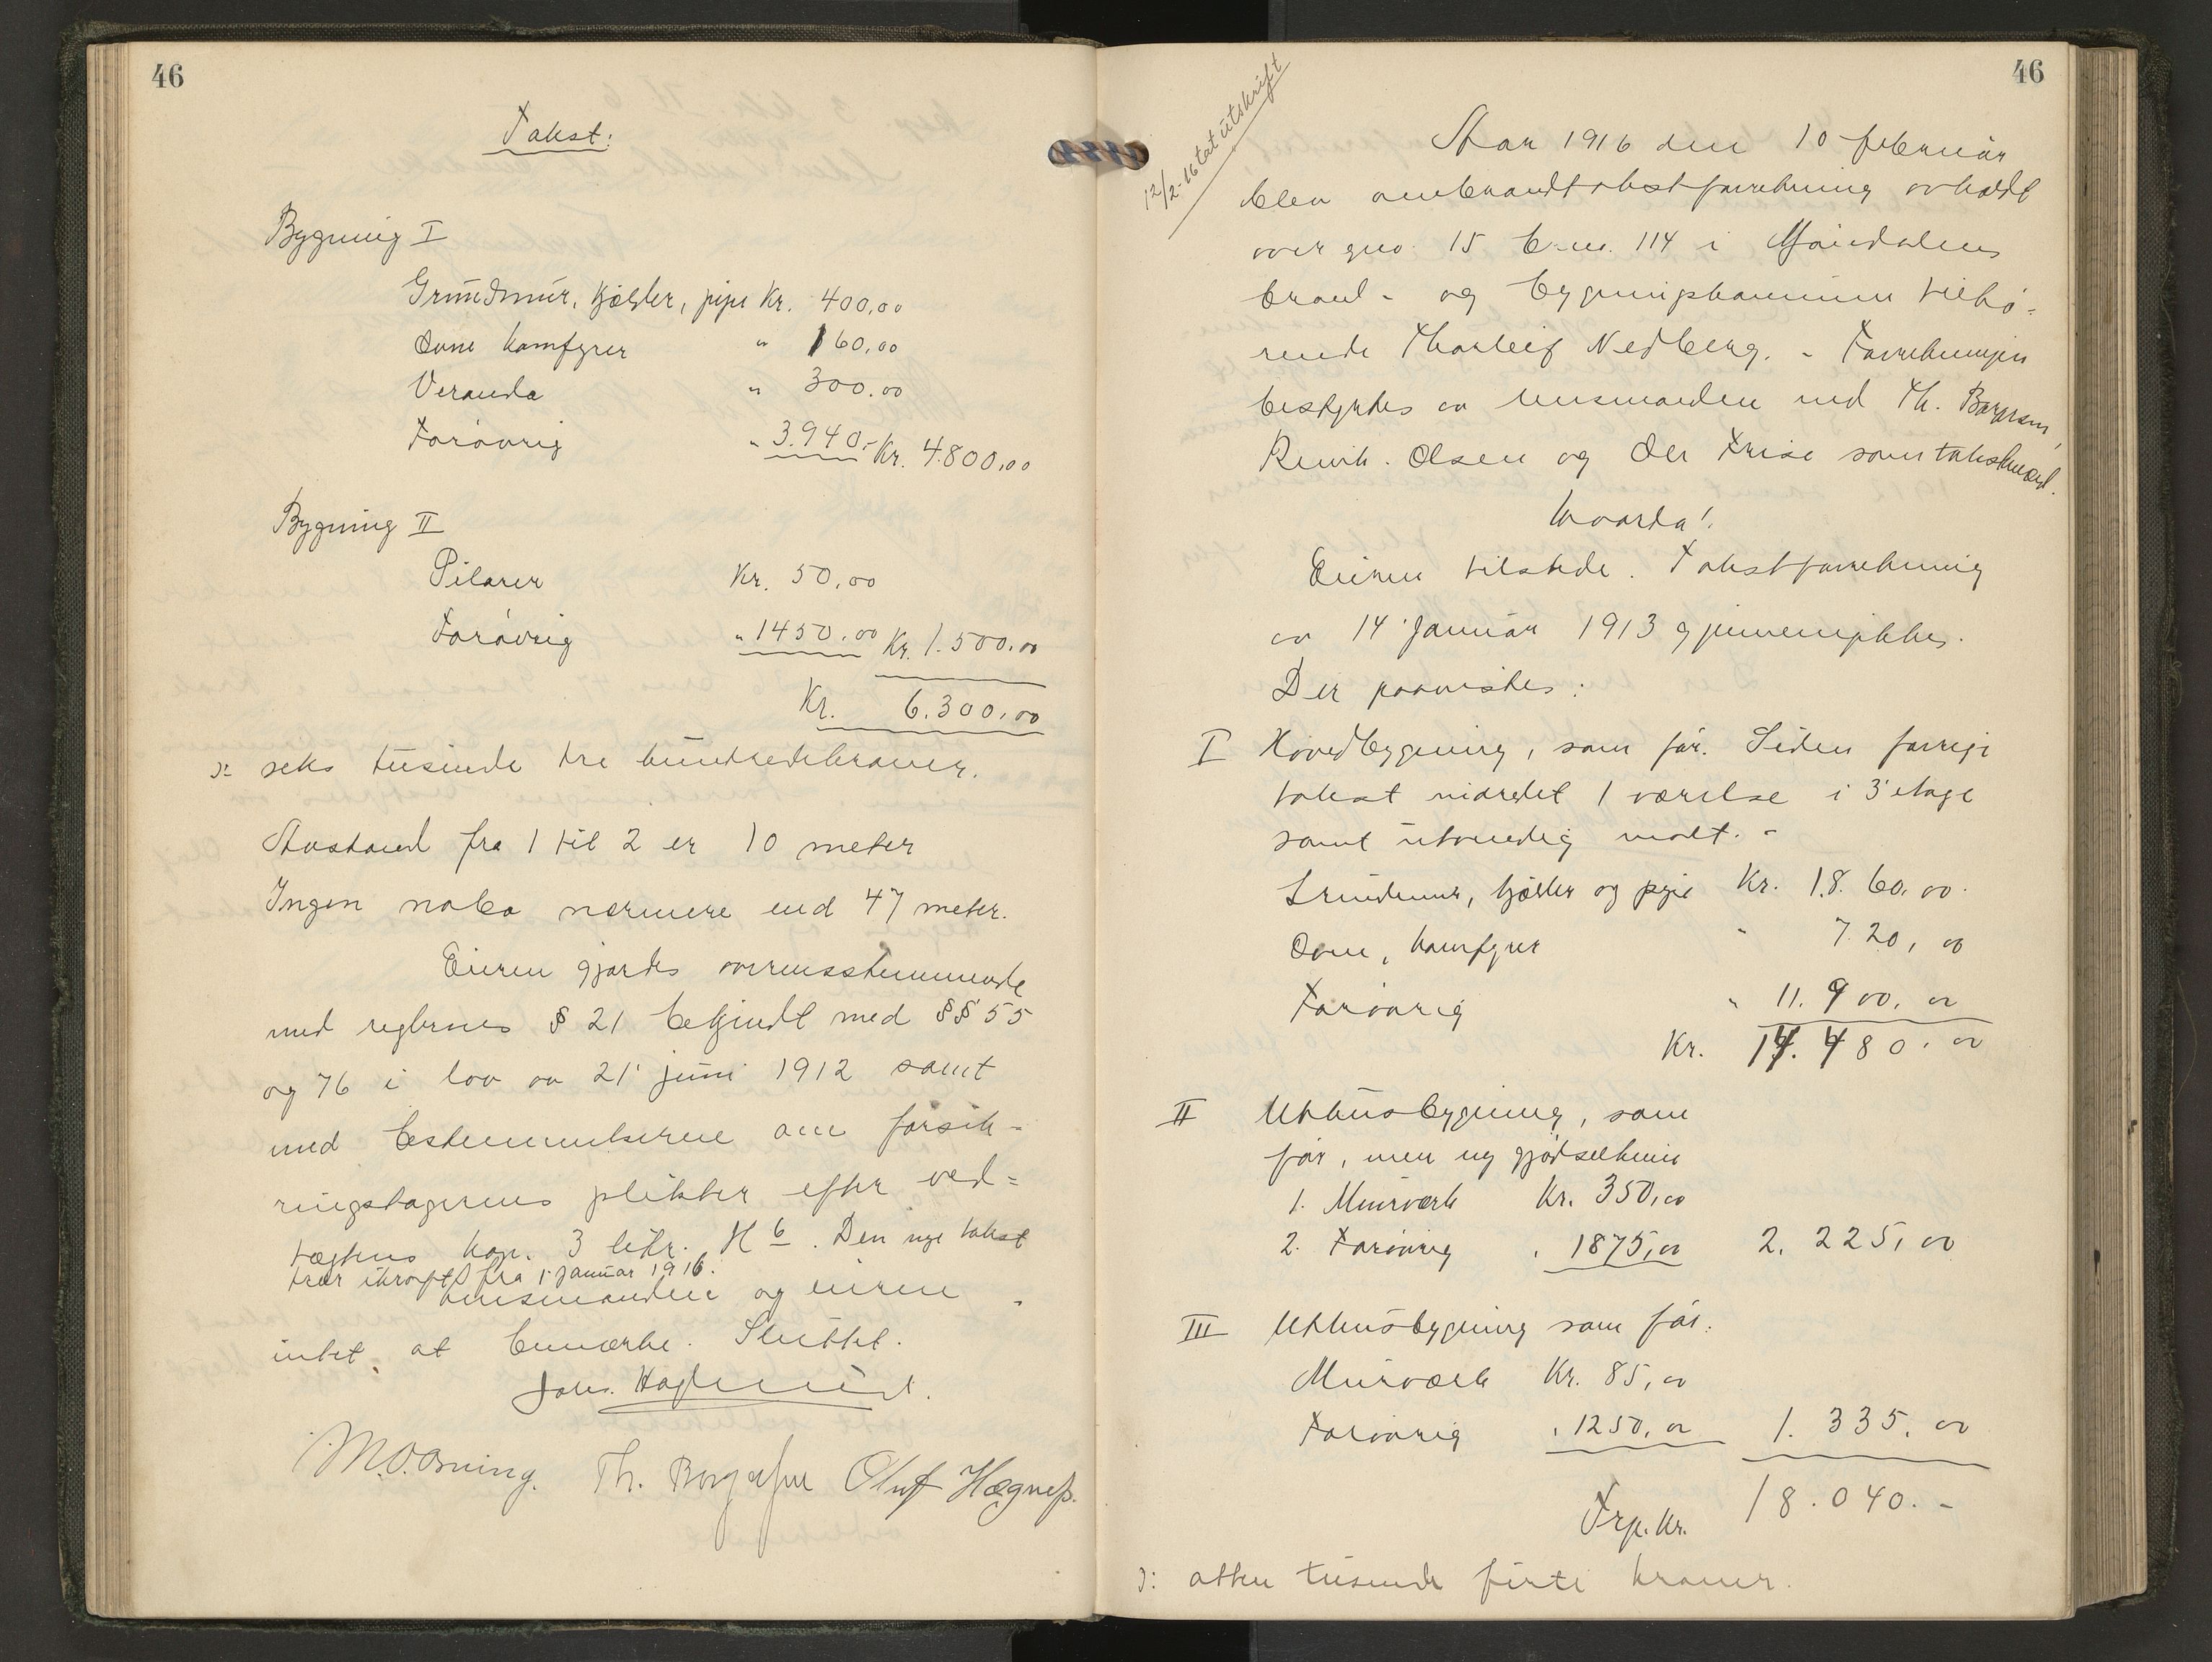 46
Takst:
Bygning I
Grundmur, kjelder, pipe Kr. 400,00
Ovne komfyrer " 160,00
Veranda " 300.00
Forøvrig " 3.940,- Kr. 4.800,00
Bygning II
Pilarer Kr. 50,00
Forøvrig " 1450.00 Kr. 1.500.00
Kr. 6.300,00
ɔ: seks tusinde tre hundredekroner.
Avstand fra 1 til 2 er 10 meter
Ingen nabo nærmere end 47 meter.
Eieren gjordes overensstemmende
med reglernes § 21 bekjendt med §§ 55
og 76 i lov av 21' juni 1912 samt
med bestemmelserne om forsik-
ringstagerens plikter efter ved=
tægtens kap. 3 litr. H 6. Den nye takst
trær ikraft fra 1' januar 1916.
Lensmanden og eieren
intet at bemærke. Sluttet.
Johs.
M.O. Orning. Th. Borgersen Oluf Hægnes.
46
12/2-16 tat utskrift
Aar 1916 den 10 februar
blev ombrandtakstforretning avholdt
over gno. 15 b.no. 114 i Mjøndalens
brand- og bygningskommune tilhø=
rende Thorleif Nedberg. - Forretningen
bestyrtes av lensmanden med Th. Borgersen,
Reinh. Olsen og Ole Frise som takstmænd.
Hvorda!
Eieren tilstede. Takstforretning
av 14' januar 1913 gjennemgikkes.
Der paavistes:
I Hovedbygning, som før. Siden forrige
takst indredet 1 værelse i 3' etage
samt utvendig malt. -
Grundmur, kjelder og pipe Kr. 1.8.60,00.
Ovne, komfyrer " 7.20,00
Forøvrig " 11.900,00
Kr. 14.480.00
II Uthusbygning, som
før, men ny gjødselkum
1. Murværk Kr. 350,00
2. Forøvrig " 1875,00 2.225,00
III Uthusbygning som før.
Murværk Kr. 85,00
Forøvrig " 1250,00 1.335,00
Trp. kr. 18.040.-
ɔ: atten tusinde firti kroner.